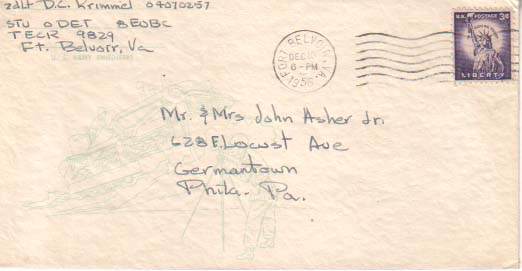 2dLt D.C. Krimmel 04070257
STU O DET 8EOBC
TECR 9829
Ft. Belvoir, Va
U. S. ARMY ENGINEERS
FORT BELVOIR, VA.
DEC 10
6 - PM
1956
U.S. POSTAGE 3¢
LIBERTY
Mr. & Mrs John Asher Jr.
628 E. Locust Ave
Germantown
Phila. Pa.